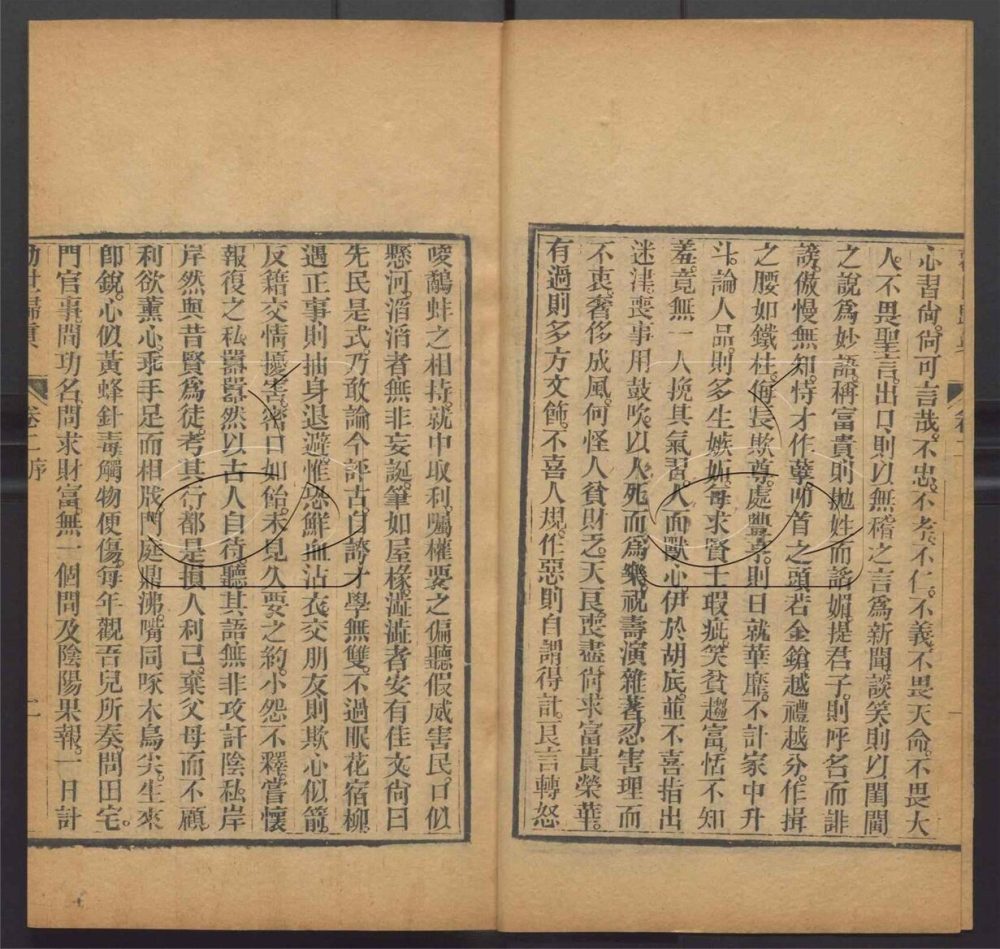 心習尙。尙可言哉。不忠。不孝。不仁。不義。不畏天命。不畏大
人。不畏聖言。出口則以無稽之言爲新聞。談笑則以閨閫
之說爲妙語。稱富貴則拋姓而諂媚。提君子則呼名而誹
謗。傲慢無知。恃才作孽。叩首之頭若金鎗。越禮越分。作揖
之腰如鐵柱。侮長欺尊。處豐亨。則日就華靡。不計家中升
斗。論人品。則多生嫉妬。每求賢士瑕疵。笑貧趨富。恬不知
羞。竟無一人挽其氣習。人面獸心。伊於胡底。並不喜指出
迷津。喪事用鼓吹。以人死而爲樂。祝壽演雜著。忍害理而
不衷。奢侈成風。何怪人貧財乏。天良喪盡。尙求富貴榮華。
有過則多方文飾。不喜人規。作惡則自謂得計。良言轉怒
唆鷸蚌之相持。就中取利。囑權要之偏聽。假威害民。口似
懸河。滔滔者無非妄誕。筆如屋椽。滋滋者安有佳文。尙曰
先民是式。乃敢論今評古。自誇才學無雙。不過眠花宿柳
遇正事則抽身退避。惟恐鮮血沾衣。交朋友則欺心似箭。
反籍交情擾害。密口如飴。未見久要之約。小怨不釋。嘗懷
報復之私。囂囂然以古人自待。聽其語無非攻訐陰私。岸
岸然與昔賢爲徒。考其行都是損人利己。棄父母而不顧。
利欲薰心。乖手足而相戕。門庭鼎沸。嘴同啄木鳥尖。生來
卽銳。心似黃蜂針毒。觸物便傷。每年觀吾兒所奏。問田宅。
門官事。問功名。問求財富。無一個問及陰陽果報。一日計
勸世歸真
卷二序
二